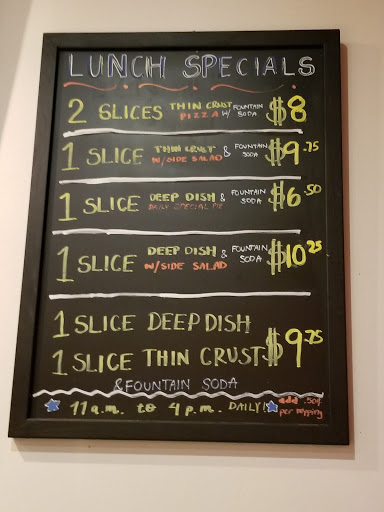 LUNCH SPECIALS
2 SLICES THIN CRUST PIZZA W/ FOUNTAIN SODA $8
1 SLICE THIN CRUST W/SIDE SALAD & FOUNTAIN SODA $9.75
1 SLICE DEEP DISH DAILY SPECIAL PIE & FOUNTAIN SODA $6.50
1 SLICE DEEP DISH W/SIDE SALAD & FOUNTAIN SODA $10.25
1 SLICE DEEP DISH
1 SLICE THIN CRUST $9.75
& FOUNTAIN SODA
11 a.m. to 4 p.m. DAILY! add .50¢ per topping